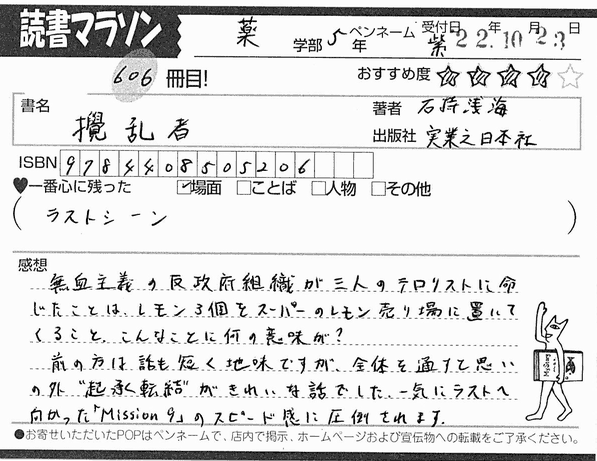 読書マラソン
薬 学部 5年 ペンネーム 紫 受付日 22年10月23日
606 冊目! おすすめ度 ★★★★☆
書名 攪乱者
著者 石持浅海
出版社 実業之日本社
ISBN 9784408505206
♥一番心に残った ☑場面 □ことば □人物 □その他
(ラストシーン)
感想
無血主義の反政府組織が三人のテロリストに命
じたことは、レモン3個をスーパーのレモン売り場に置いて
くること。こんなことに何の意味が?
前の方は話も短く地味ですが、全体を通すと思い
の外“起承転結”がきれいな話でした。一気にラストへ
向かった「Mission 9」のスピード感に圧倒されます。
●お寄せいただいたPOPはペンネームで、店内で掲示、ホームページおよび宣伝物への転載をご了承ください。